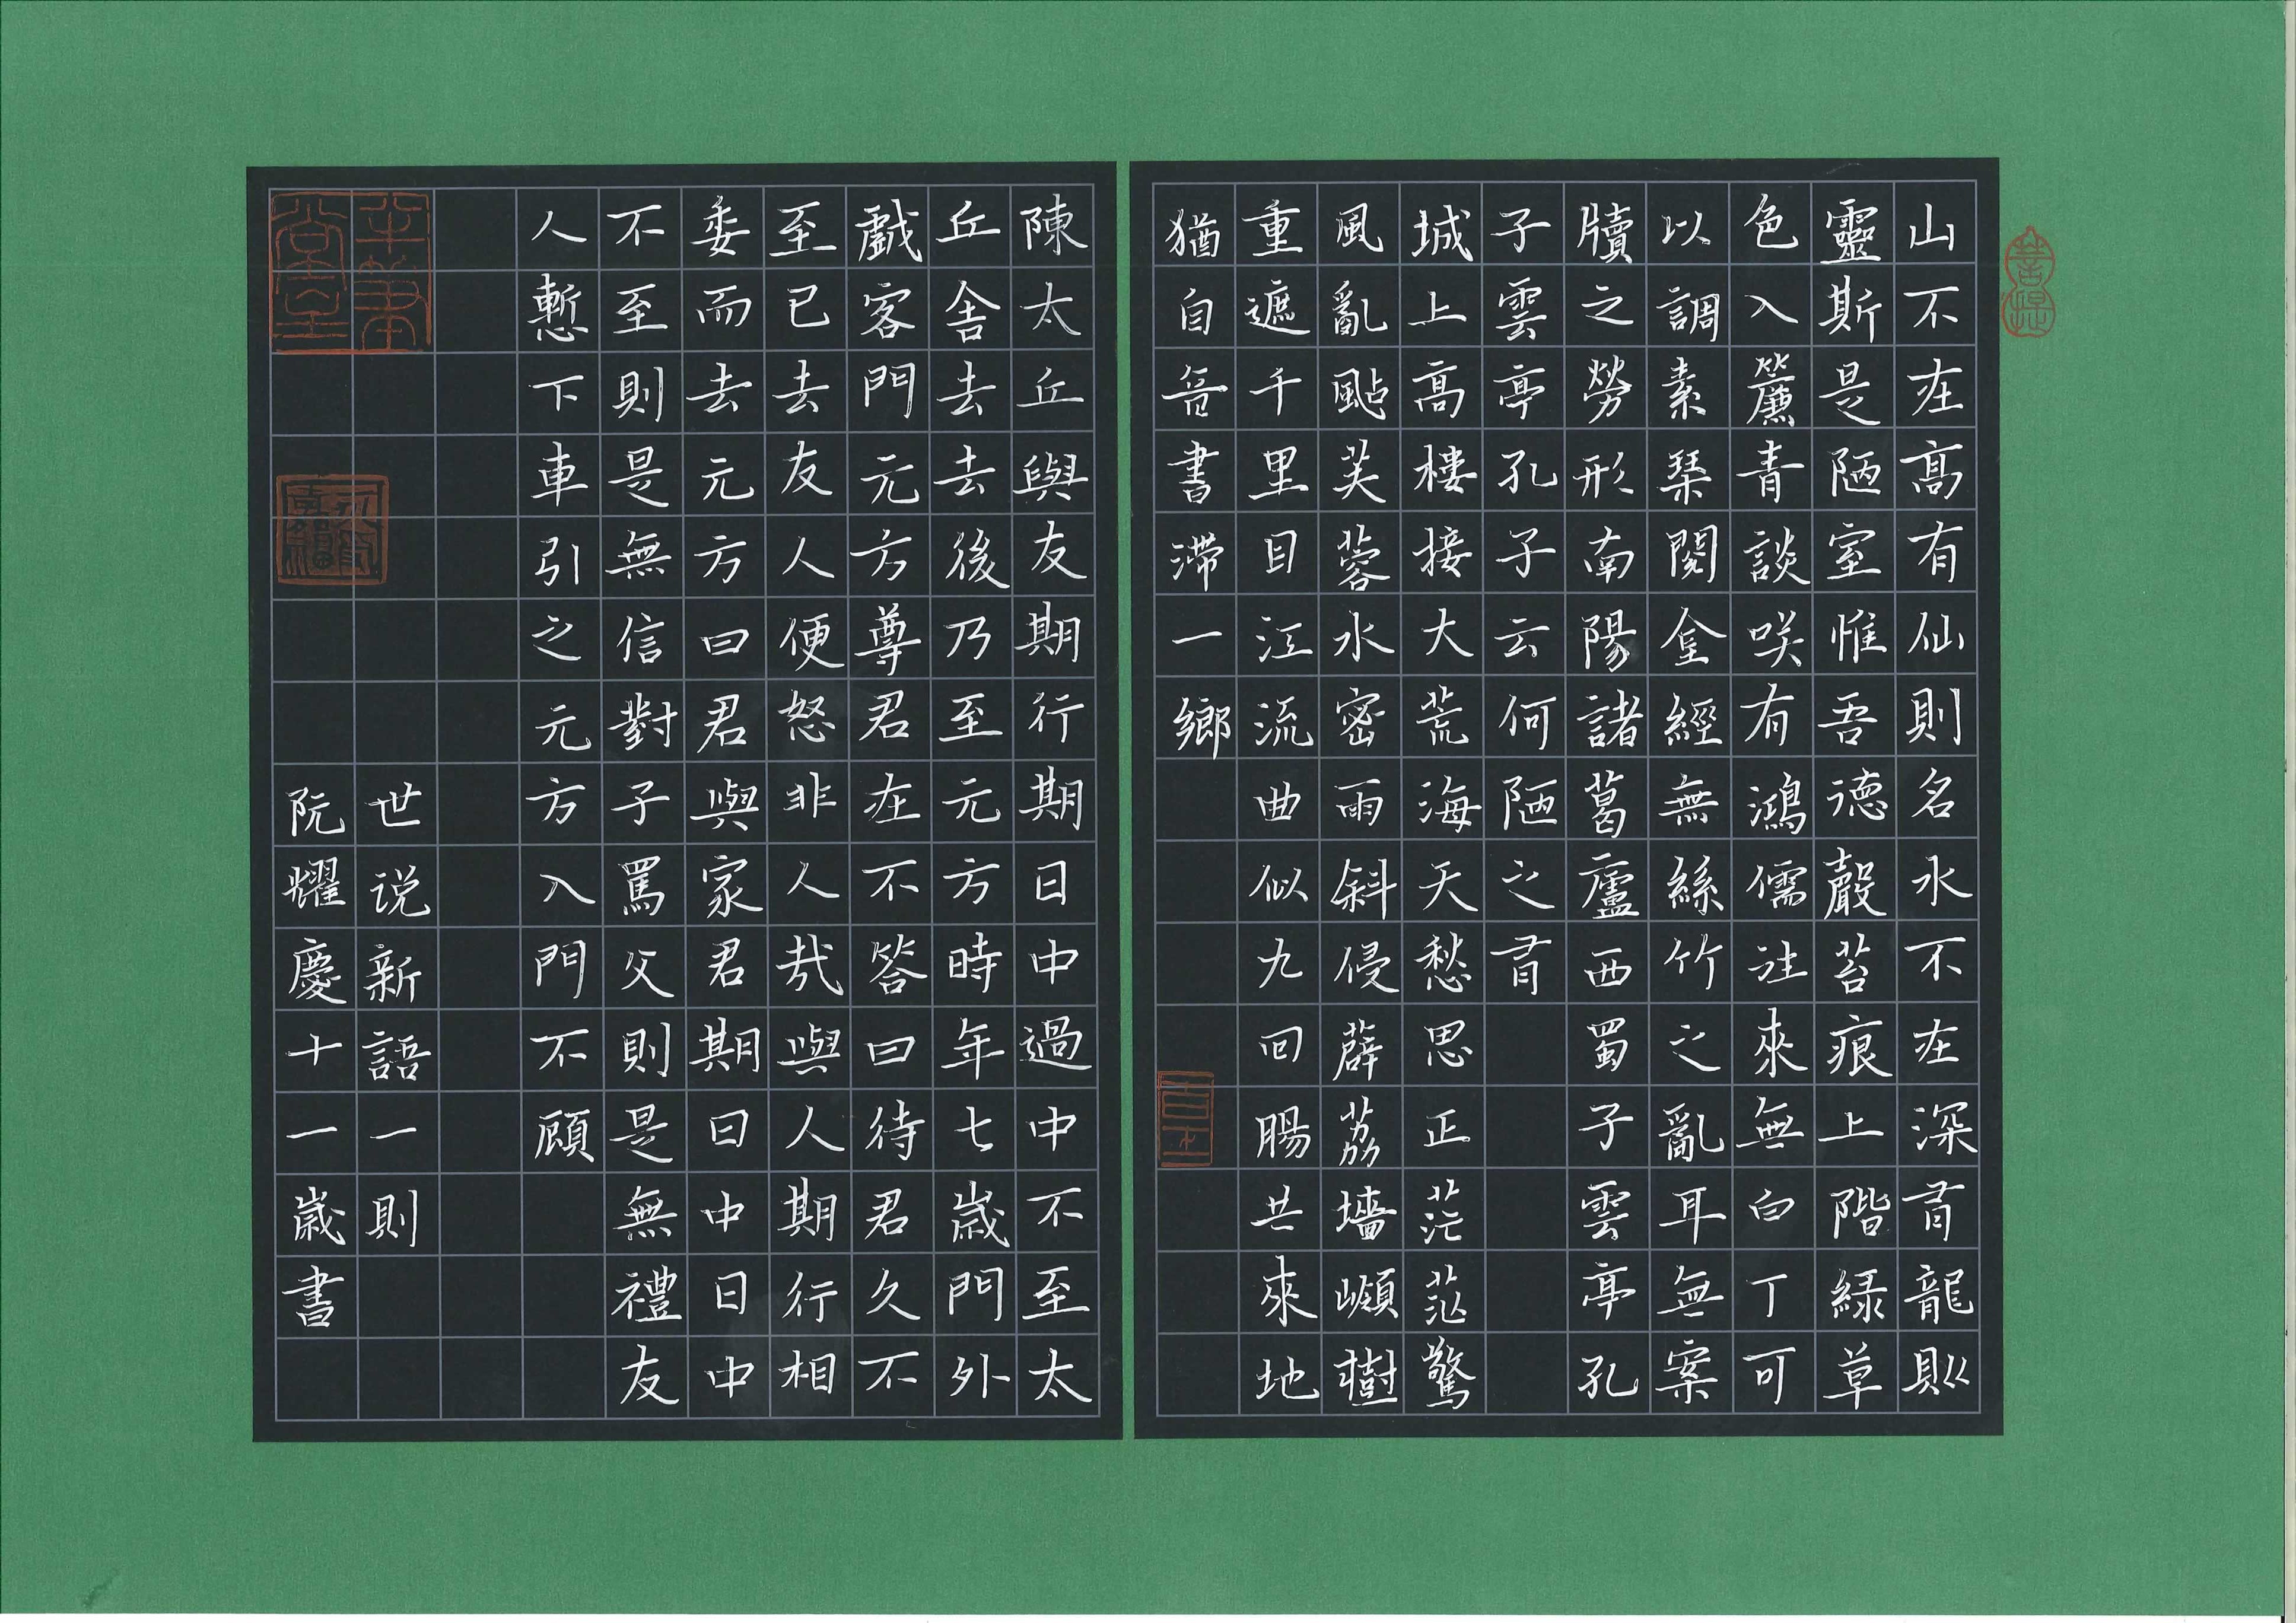 山不在高有仙則名水不在深有龍則
靈斯是陋室惟吾德馨苔痕上階緑草
色入簾青談咲有鴻儒往來無白丁可
以調素琴閱金經無絲竹之亂耳無案
牘之勞形南陽諸葛廬西蜀子雲亭孔
子雲亭孔子云何陋之有
城上高樓接大荒海天愁思正茫茫驚
風亂颭芙蓉水密雨斜侵薜荔墻嶺樹
重遮千里目江流曲似九回腸共來地
猶自音書滯一鄉
陳太丘與友期行期日中過中不至太
丘舍去去後乃至元方時年七歲門外
戲客門元方尊君在不答曰待君久不
至已去友人便怒非人哉與人期行相
委而去元方曰君與家君期日中日中
不至則是無信對子罵父則是無禮友
人慙下車引之元方入門不顧
世说新語一則
阮耀慶十一歲書